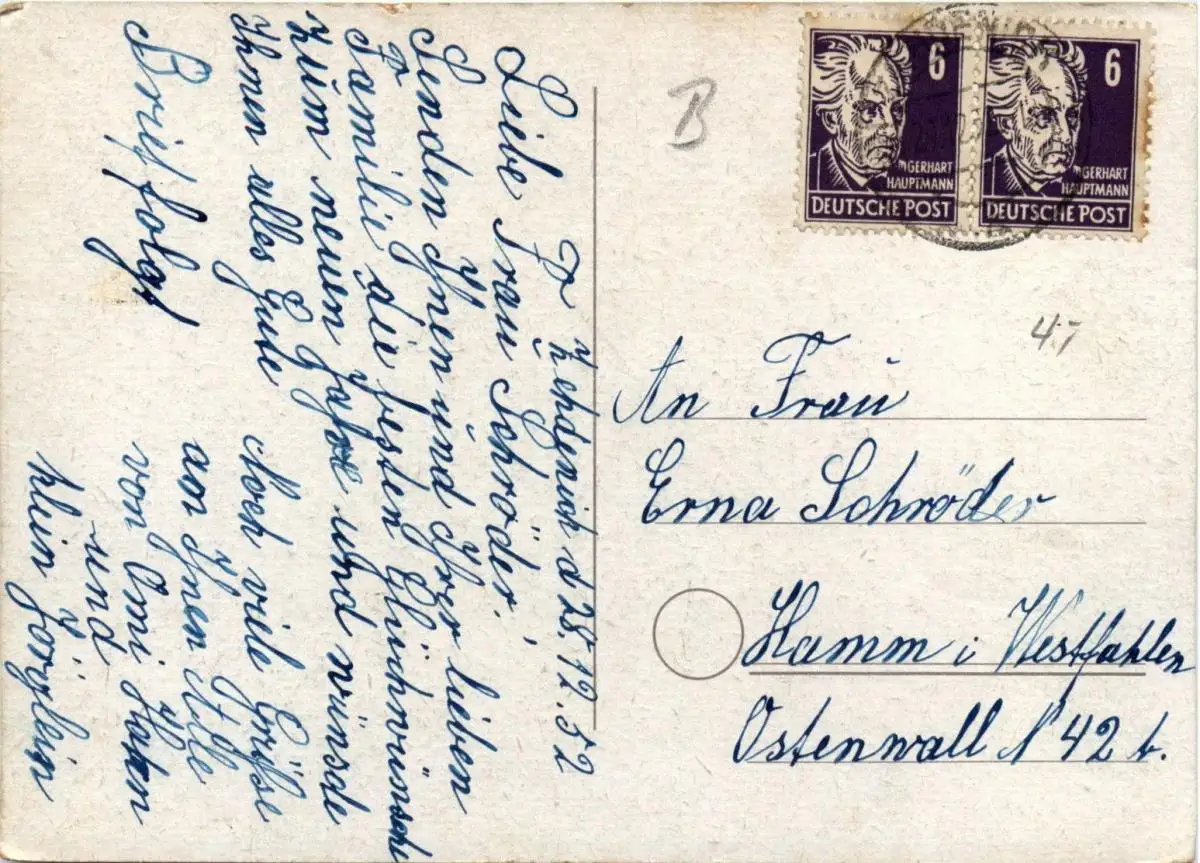 Zehdenick d 28.12.52
Liebe Frau Schröder!
Senden Ihnen und Ihrer lieben
Familie die besten Glückwünsche
zum neuen Jahre und wünsche
Ihnen alles Gute
Brief folgt
Noch viele Grüße
an Ihnen Alle
von Omi
und
klein Jörglein
B
6
GERHART
HAUPTMANN
DEUTSCHE POST
6
GERHART
HAUPTMANN
DEUTSCHE POST
47
An Frau
Erna Schröder
Hamm i Westfahlen
Ostenwall N 42 b.